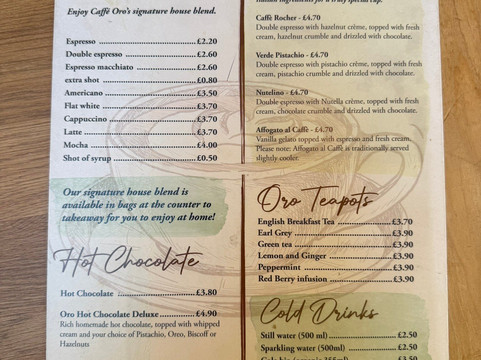 Enjoy Caffè Oro's signature house blend.
Espresso £2.20
Double espresso £2.60
Espresso macchiato £2.60
extra shot £0.80
Americano £3.50
Flat white £3.70
Cappuccino £3.70
Latte £3.70
Mocha £4.00
Shot of syrup £0.50
Our signature house blend is
available in bags at the counter to
takeaway for you to enjoy at home!
Hot Chocolate
Hot Chocolate £3.80
Oro Hot Chocolate Deluxe £4.90
Rich homemade hot chocolate, topped with whipped
cream and your choice of Pistachio, Oreo, Biscoff or
Hazelnuts
Italian ingredients for a truly special cup.
Caffè Rocher - £4.70
Double espresso with hazelnut crème, topped with fresh
cream, hazelnut crumble and drizzled with chocolate.
Verde Pistachio - £4.70
Double espresso with pistachio crème, topped with fresh
cream, pistachio crumble and drizzled with chocolate.
Nutelino - £4.70
Double espresso with Nutella crème, topped with fresh
cream, chocolate crumble and drizzled with chocolate.
Affogato al Caffè - £4.70
Vanilla gelato topped with espresso and fresh cream.
Please note: Affogato al Caffè is traditionally served
slightly cooler.
Oro Teapots
English Breakfast Tea £3.70
Earl Grey £3.90
Green tea £3.90
Lemon and Ginger £3.90
Peppermint £3.90
Red Berry infusion £3.90
Cold Drinks
Still water (500 ml) £2.50
Sparkling water (500ml) £2.50